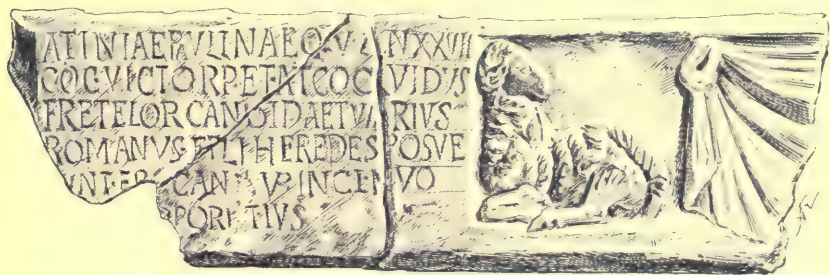 ATINIAEPAVLINAEQ·V·ANXXVIII
COCVICTORPETATCOCVIDVS
FRETELORCANDIDAETVARIVS
ROMANVSFILIHEREDESPOSVE
VNTER CAN INGENVO
PORETIVS